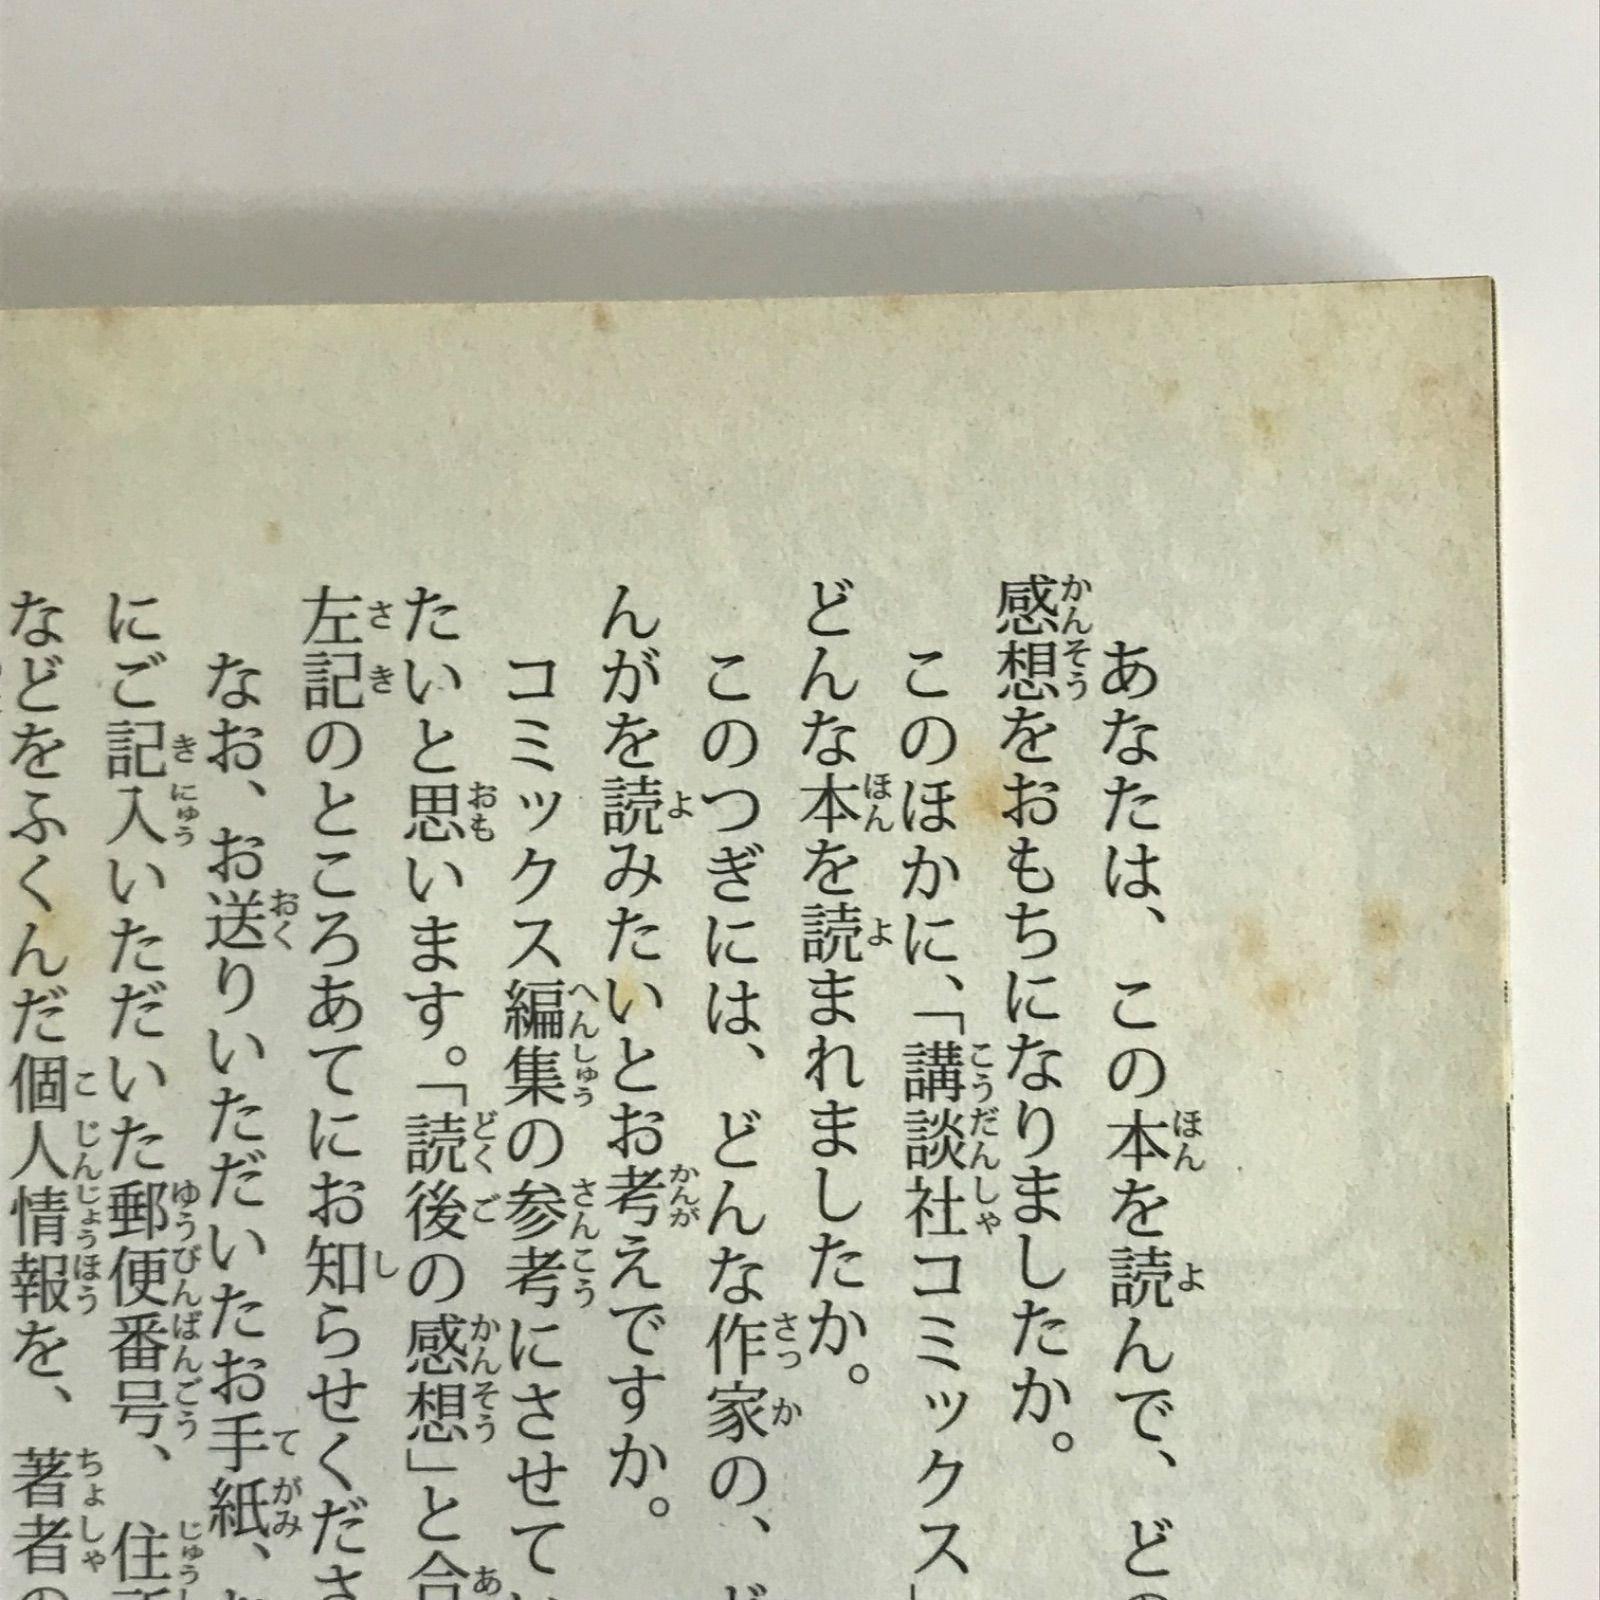 あなたは、この本を読んで、どの
感想をおもちになりましたか。
このほかに、「講談社コミックス」
どんな本を読まれましたか。
このつぎには、どんな作家の、ど
んがを読みたいとお考えですか。
コミックス編集の参考にさせてい
たいと思います。「読後の感想」と合
左記のところあてにお知らせくださ
なお、お送りいただいたお手紙、
にご記入いただいた郵便番号、住所
などをふくんだ個人情報を、著者の